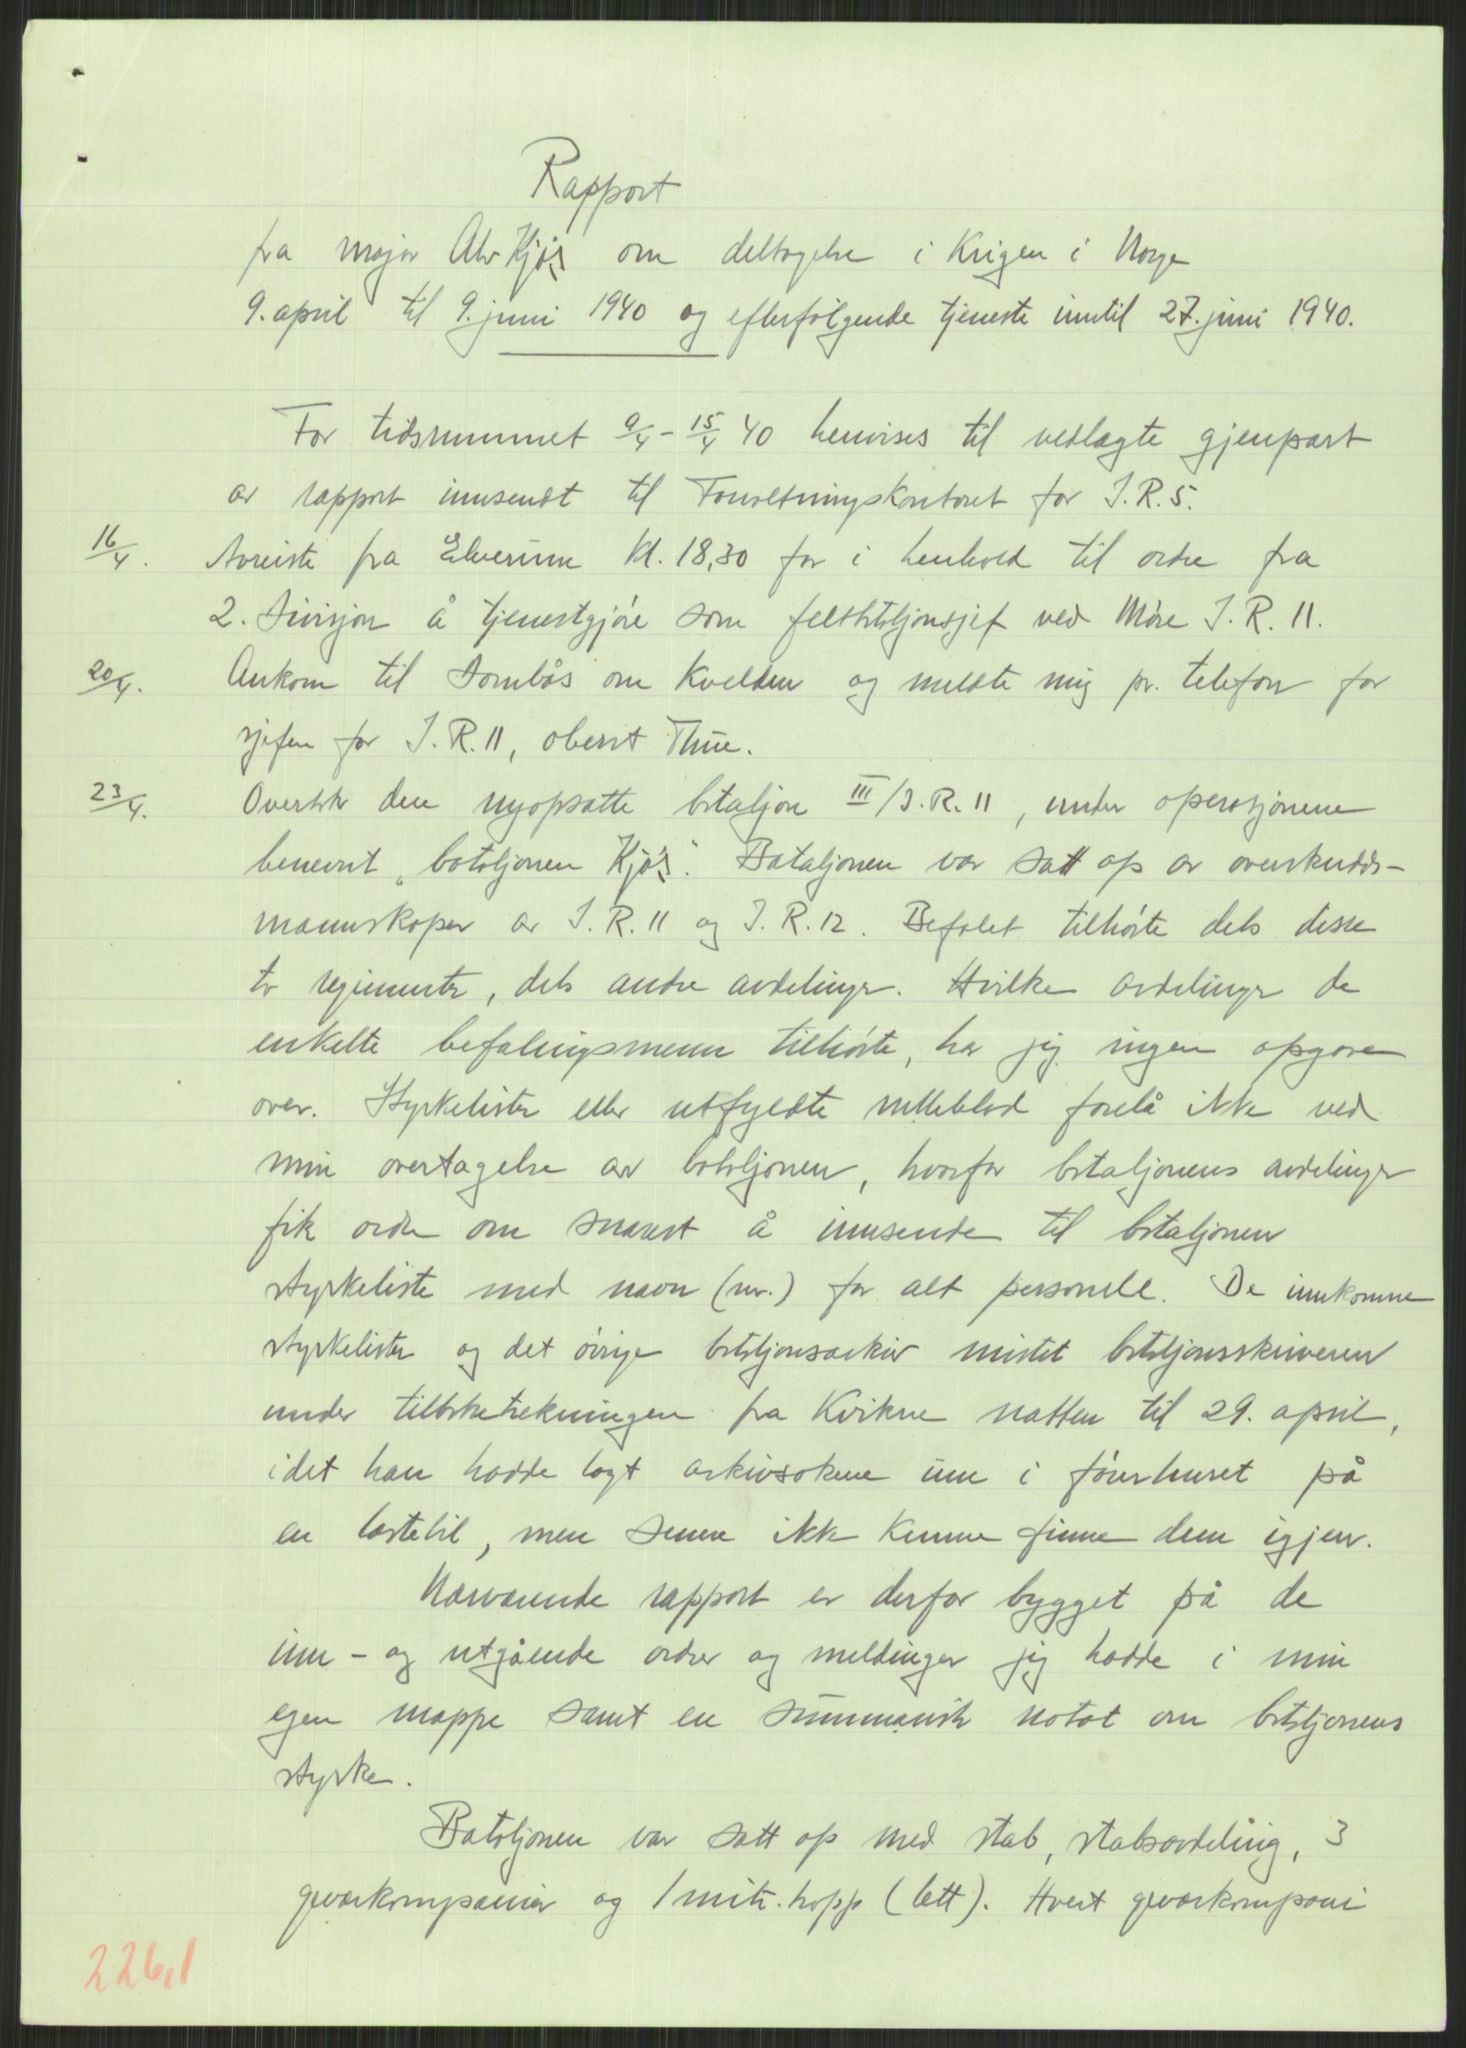 Rapport
fra major Alv Kjøs om deltagelse i Krigen i Norge
9. april til 9. juni 1940 og efterfølgende tjeneste inntil 27. juni 1940.
For tidsrummet 9/4 - 15/4 40 henvises til vedlagte gjenpart
av rapport innsendt til Forvaltningskontoret for I.R.5.
16/4. Avreiste fra Elverum kl. 18,30 for i henhold til ordre fra
2. Divisjon å tjenestgjøre som feltbataljonssjef ved Møre I.R. 11.
20/4. Ankom til Dombås om kvelden og meldte mig pr. telefon for
sjefen for I.R. 11, oberst Thue.
23/4. Overtok den nyopsatte bataljon III/I.R. 11, under operasjonene
benevnt „bataljonen Kjøs". Bataljonen var satt op av overskudds-
mannskaper av I.R. 11 og I.R. 12. Befalet tilhørte dels disse
to regimenter, dels andre avdelinger. Hvilke avdelinger de
enkelte befalingsmenn tilhørte, har jeg ingen opgave
over. Styrkelister eller utfyldte rulleblad forelå ikke ved
min overtagelse av bataljonen, hvorfor bataljonens avdelinger
fik ordre om snarest å innsende til bataljonen
styrkeliste med navn (nr.) for alt personell. De innkomne
styrkelister og det øvrige bataljonsarkiv mistet bataljonsskriveren
under tilbaketrekningen fra Kvikne natten til 29. april,
idet han hadde lagt arkivsakene inn i førerhuset på
en lastebil, men senere ikke kunne finne dem igjen.
Nærværende rapport er derfor bygget på de
inn- og utgående ordrer og meldinger jeg hadde i min
egen mappe samt en summarisk notat om bataljonens
styrke.
Bataljonen var satt op med stab, stabsavdeling, 3
geværkompanier og 1 mitr. kopp (lett). Hvert geværkompani
226,1